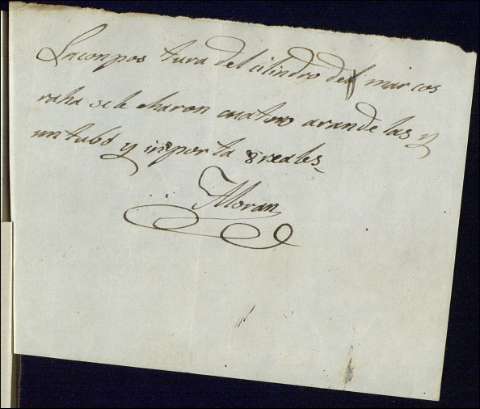 Laconpos tura del cilindro de marcos
raha se le charon cuatro arandelas y
un tubo y inporta 8 reales
Moran